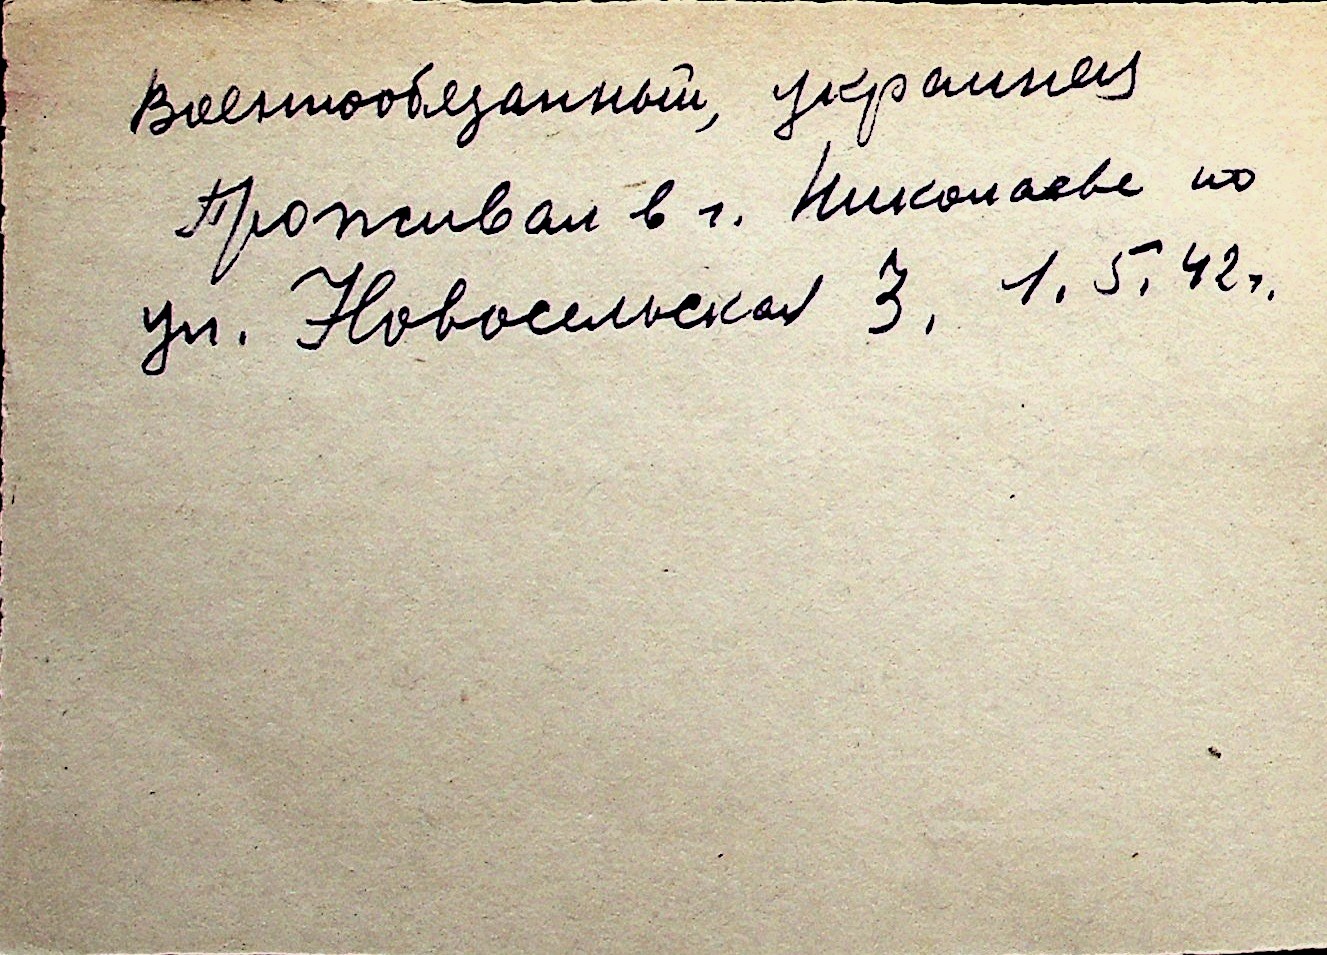 Военнообязанный, украинец
Проживал в г. Николаеве по
ул. Новосельская 3, 1.5.42г.